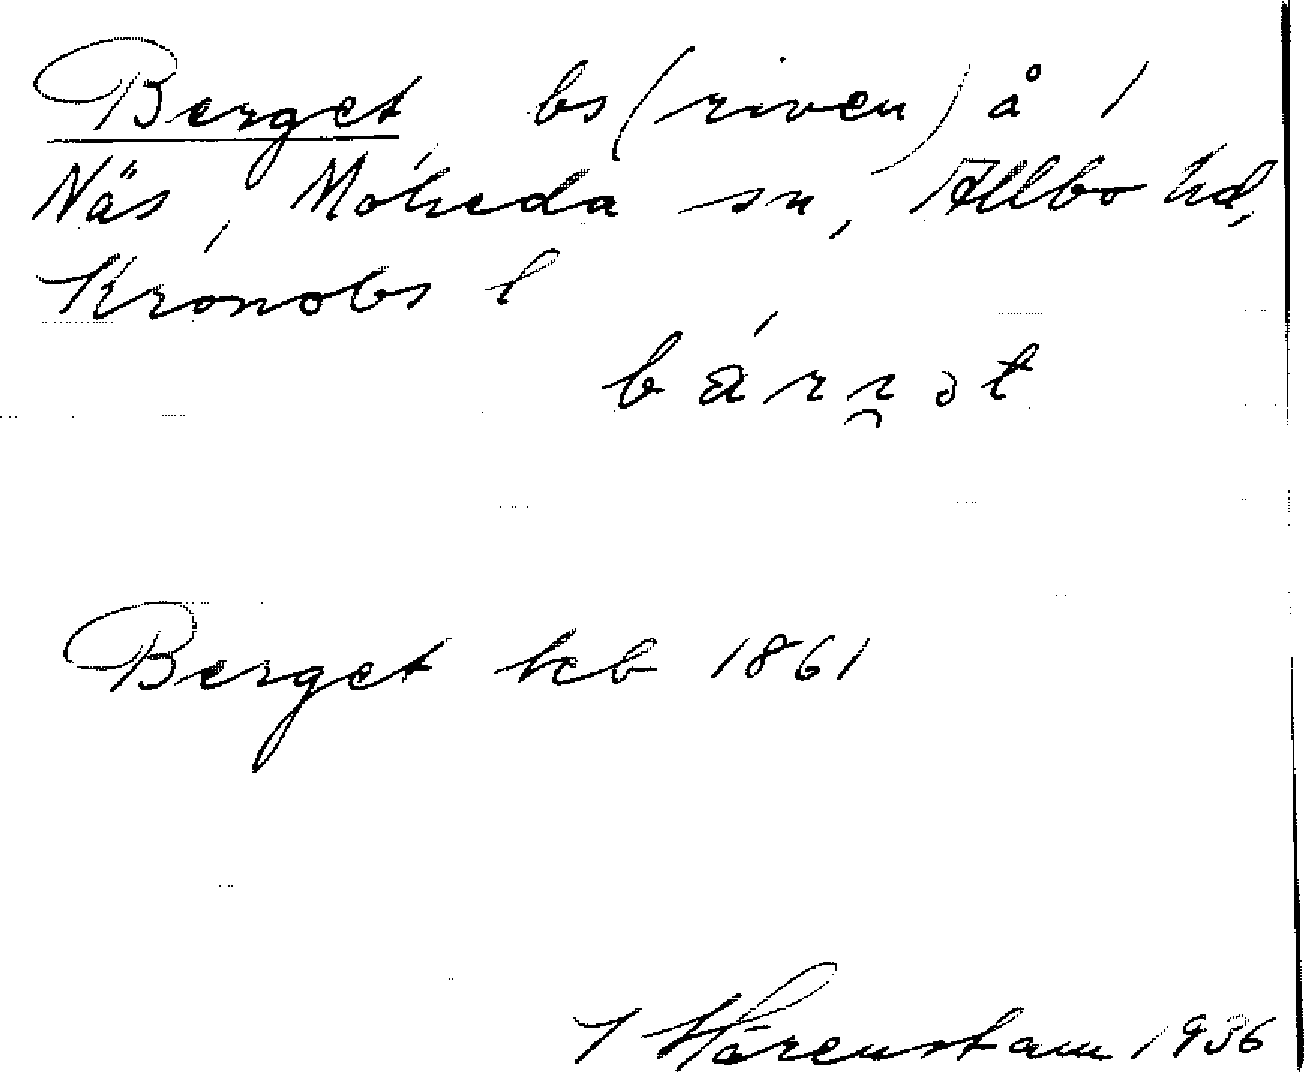 Berget bs (riven) å 1
Näs, Moheda sn, Allbo hd,
Kronobs l
Berget kb 1861
Härenstam 1936